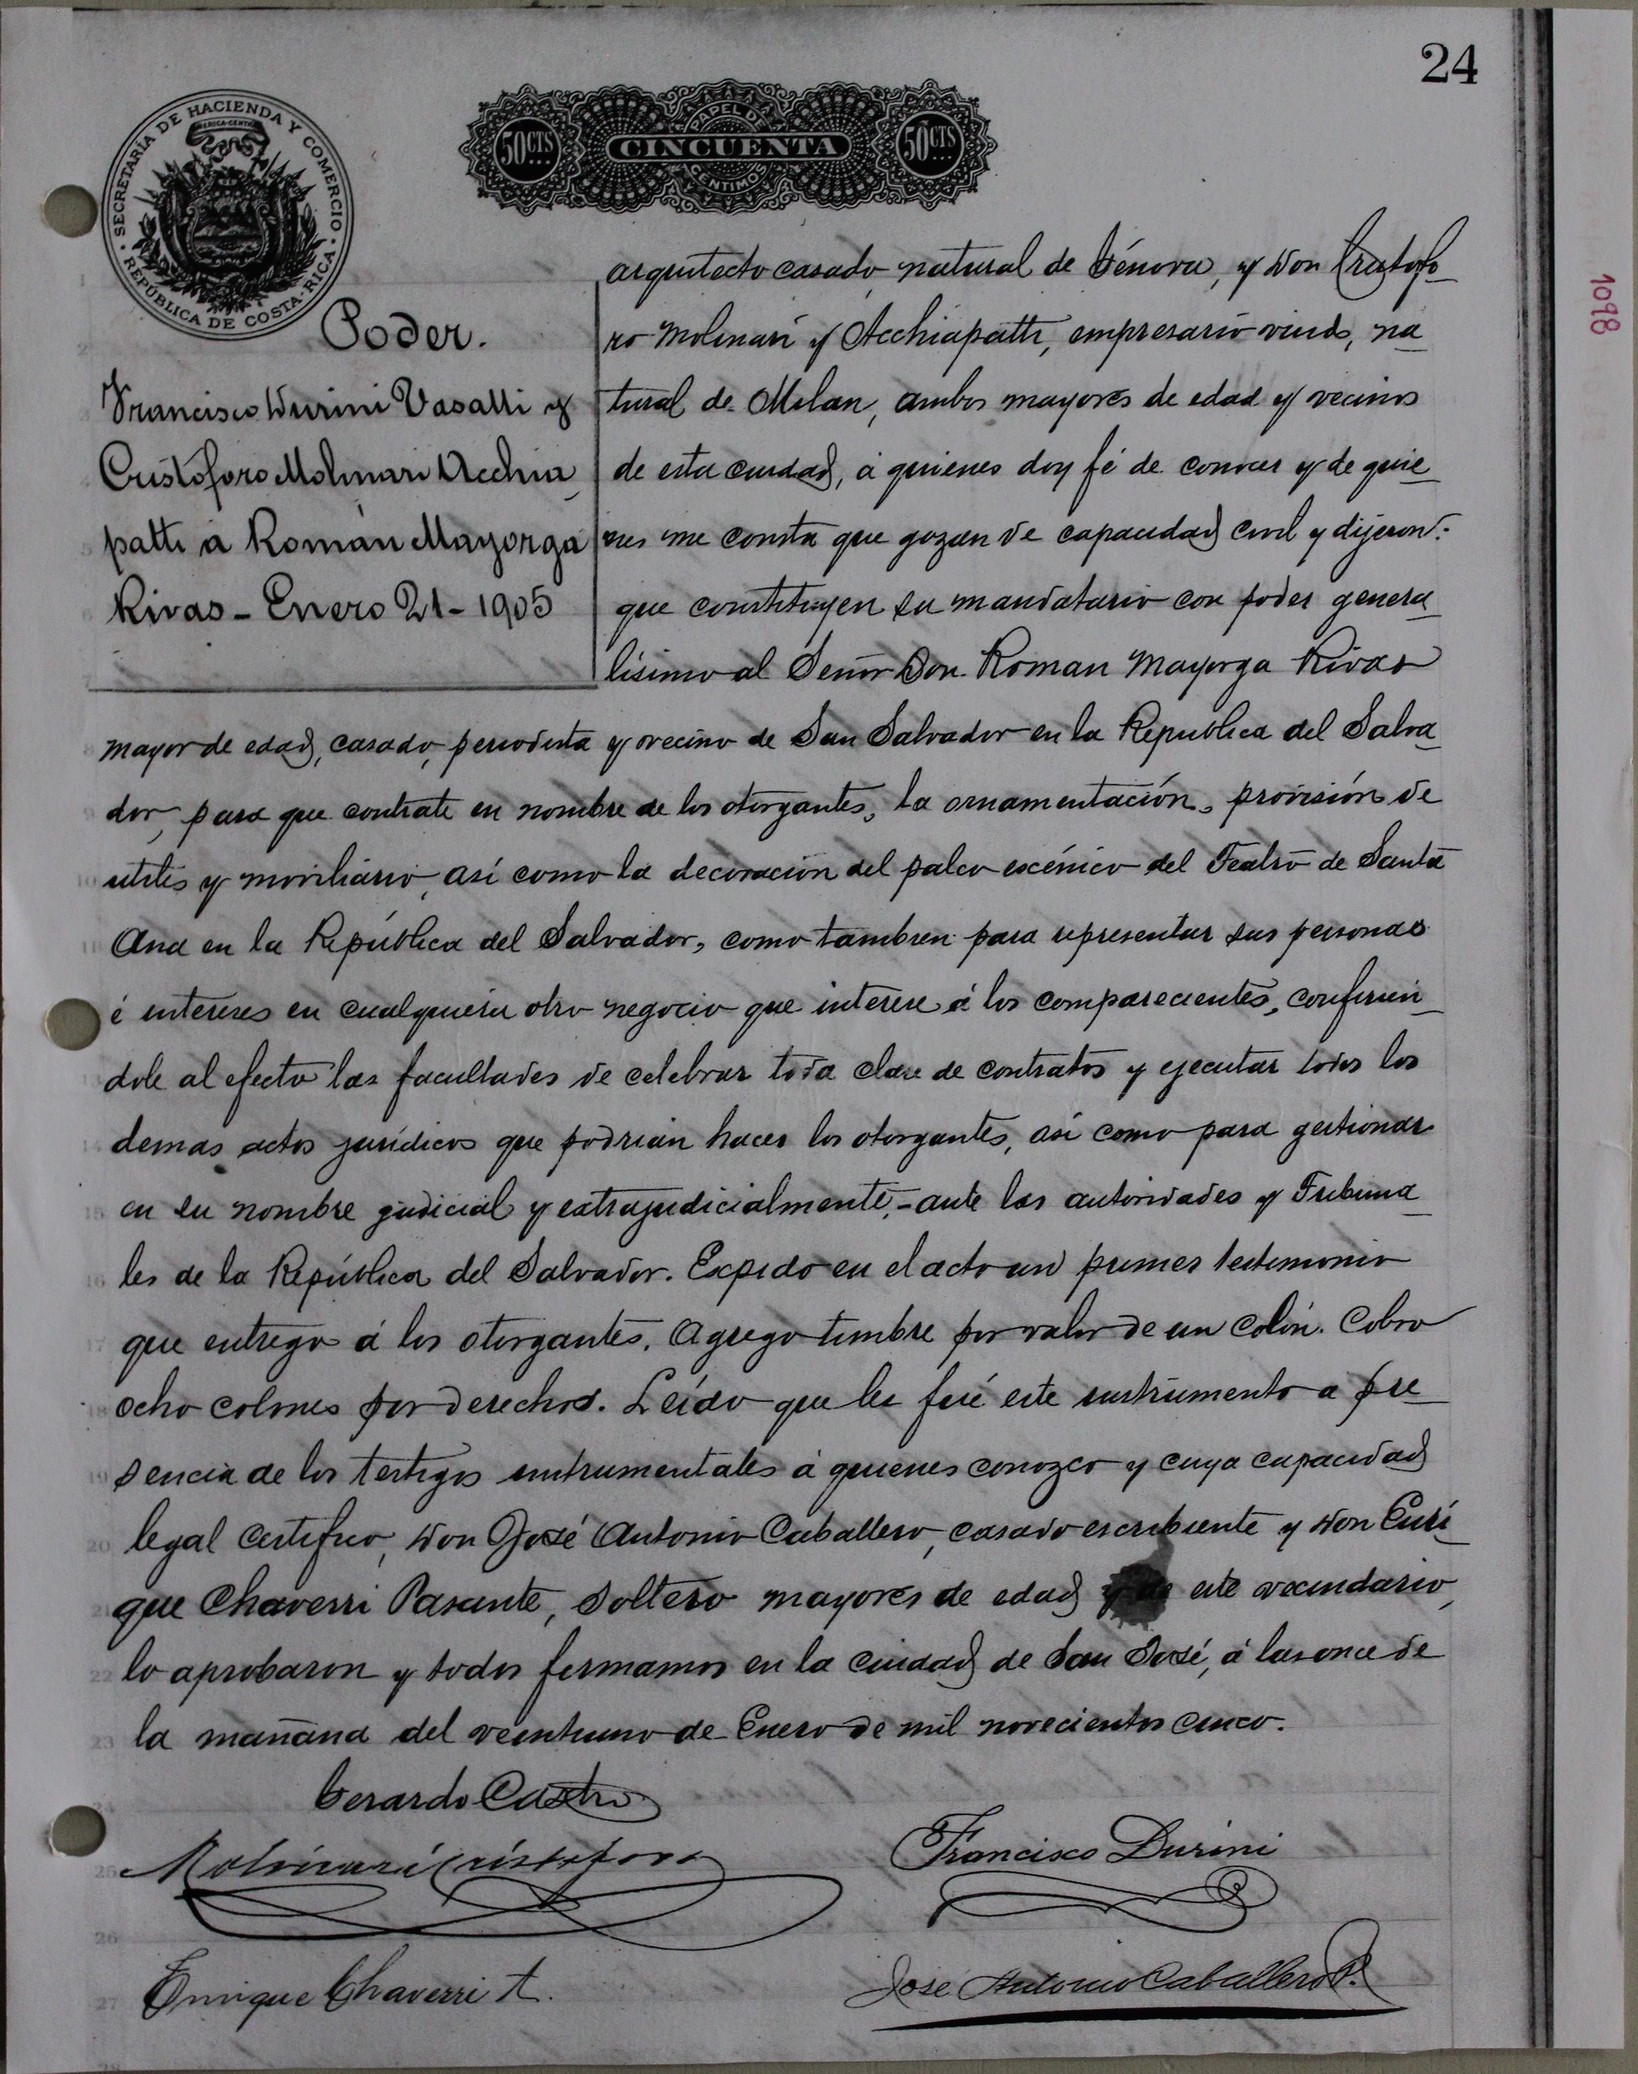 24
1098
SECRETARÍA DE HACIENDA Y COMERCIO
REPÚBLICA DE COSTA-RICA
AMERICA-CENTRAL
50 CTS
PAPEL DE
CINCUENTA
CENTIMOS
50 CTS
Poder.
Francisco Durini Vasalli y
Cristóforo Molinari Acchia
patti a Román Mayorga
Rivas - Enero 21 - 1905
arquitecto casado, natural de Génova, y Don Cristofo-
ro Molinari y Acchiapatti, empresario viudo, na
tural de Milan, ambos mayores de edad y vecinos
de esta ciudad, á quienes doy fé de conocer y de quie
nes me consta que gozan de capacidad civil y dijeron:
que constituyen su mandatario con poder genera
lísimo al Señor Don Roman Mayorga Rivas
mayor de edad, casado, periodista y vecino de San Salvador en la Republica del Salva
dor, para que contrate en nombre de los otorgantes, la ornamentación, provisión de
utiles y moviliario, así como la decoración del palco escénico del Teatro de Santa
Ana en la República del Salvador, como tambien para representar sus personas
é intereses en cualquiera otro negocio que interese á los comparecientes, confirien
dole al efecto las facultades de celebrar toda clase de contratos y ejecutar todos los
demas actos jurídicos que podrian hacer los otorgantes, así como para gestionar
en su nombre judicial y extrajudicialmente,- ante las autoridades y Tribuna
les de la República del Salvador. Expido en el acto un primer testimonio
que entrego á los otorgantes. Agrego timbre por valor de un colón. Cobro
ocho colones por derechos. Leído que les fué este instrumento a pre
sencia de los testigos instrumentales á quienes conozco y cuya capacidad
legal certifico, Don José Antonio Caballero, casado escribiente y Don Enri
que Chaverri Pasante, soltero mayores de edad y de este vecindario,
lo aprobaron y todos firmamos en la ciudad de San José, á las once de
la mañana del veintiuno de Enero de mil novecientos cinco.
Gerardo Castro
Molinari Cristoforo
Francisco Durini
Enrique Chaverri A.
José Antonio Caballero P.